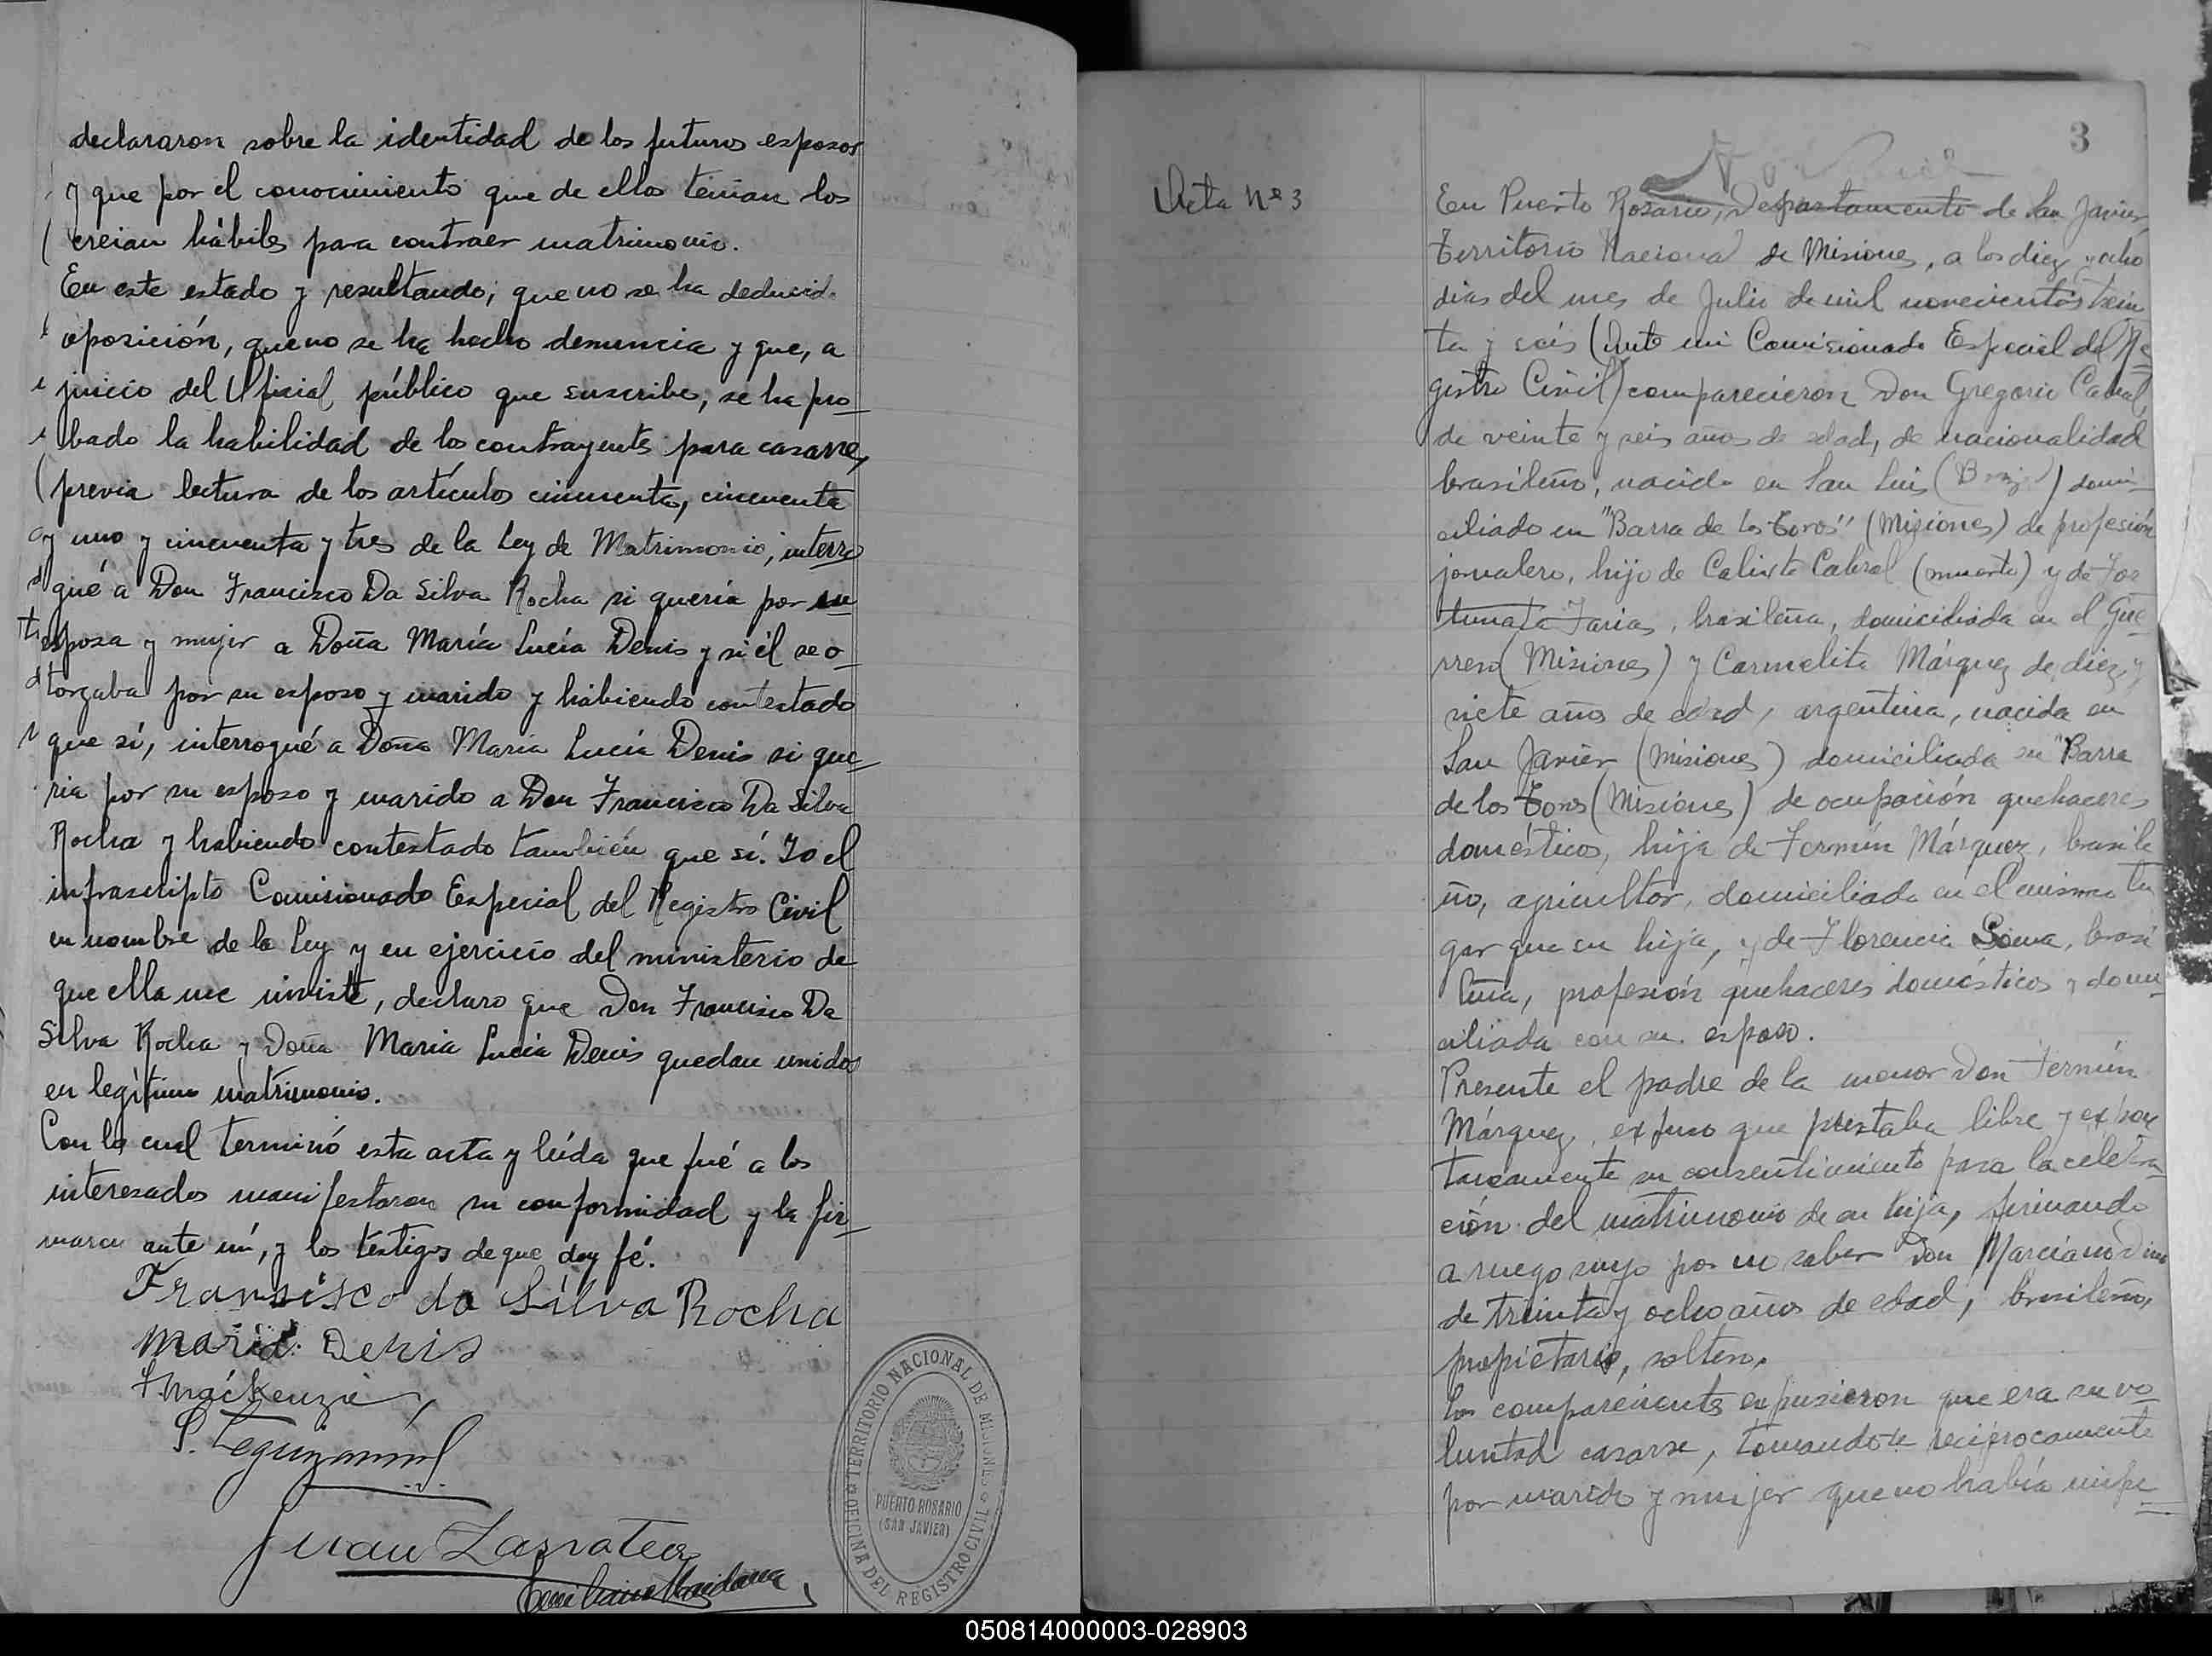 declararon sobre la identidad de los futuros esposos
y que por el conocimiento que de ellos tenían los
creian hábiles para contraer matrimonio.
En este estado y resultando; que no se ha deducid.
oposición, que no se ha hecho denuncia y que, a
juicio del Oficial público que suscribe, se ha pro-
bado la habilidad de los contrayentes para casarse,
(previa lectura de los artículos cincuenta, cincuenta
y uno y cincuenta y tres de la Ley de Matrimonio, interro
gué a Don Francisco Da Silva Rocha si quería por su
esposa y mujer a Doña María Lucía Denis y si él se o-
torgaba por su esposo y marido y habiendo contestado
que sí, interrogué a Doña María Lucía Denis si que-
ria por su esposo y marido a Don Francisco Da Silva
Rocha y habiendo contestado también que sí. Yo el
infrascripto Comisionado Especial del Registro Civil
en nombre de la Ley y en ejercicio del ministerio de
que ella me inviste, declaro que Don Francisco Da
Silva Rocha y Doña Maria Lucia Denis quedan unidos
en legítimo matrimonio.
Con lo cual terminó esta acta y leída que fué a los
interesados manifestaron su conformidad y la fir-
maron ante mí, y los testigos de que doy fé.
Fransisco da Silva Rocha
Maria Denis
F. Mackenzie
S. Leguizamón
Juan Zarratea
Emiliano Maidana
TERRITORIO NACIONAL DE MISIONES
PUERTO ROSARIO
(SAN JAVIER)
OFICINA DEL REGISTRO CIVIL
3
Acta Nº 3
En Puerto Rosario, Departamento de San Javier
Territorio Nacional de Misiones, a los diez y ocho
dias del mes de Julio de mil novecientos trein
ta y seis (Ante mi Comisionado Especial del Re
gistro Civil) comparecieron Don Gregorio Cabral,
de veinte y seis años de edad, de nacionalidad
brasileño, nacido en San Luis (Brazil) domi-
ciliado en "Barra de los Toros" (Misiones) de profesión
jornalero, hijo de Calixto Cabral (muerto) y de For
tunata Farias, brasileña, domiciliada en el Gue-
rrero (Misiones) y Carmelita Márquez de diez y
siete años de edad, argentina, nacida en
San Javier (Misiones) domiciliada en "Barra
de los Toros (Misiones) de ocupación quehaceres
domésticos, hija de Fermín Márquez, brasile
ño, agricultor, domiciliado en el mismo lu
gar que su hija, y de Florencia Soma, brasi
leña, profesión quehaceres domésticos y domi-
ciliada con su esposo.
Presente el padre de la menor Don Fermín
Márquez, expuso que prestaba libre y expon
taneamente su consentimiento para la celebra
ción del matrimonio de su hija, firmando
a ruego suyo por no saber Don Marciano
de treinta y ocho años de edad, brasileño,
propietario, soltero.
Los comparecientes expusieron que era su vo
luntad casarse, tomandose recíprocamente
por marido y mujer que no había impe
050814000003-028903